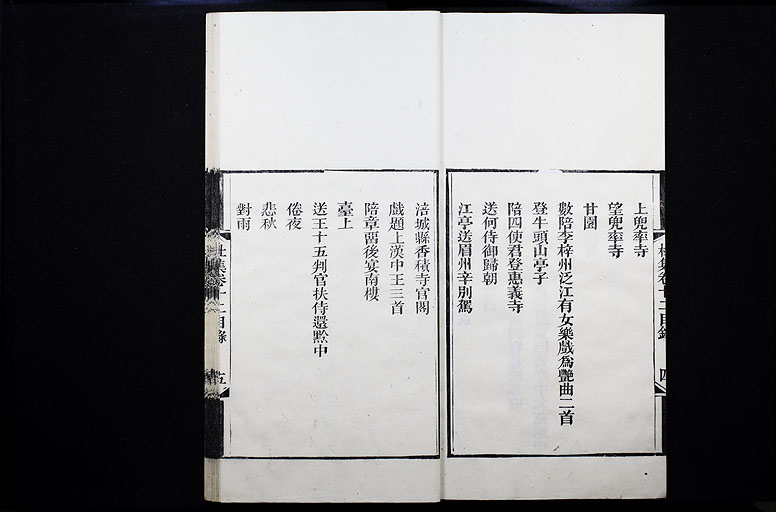 上兜率寺
望兜率寺
甘園
數陪李梓州泛江有女樂戲爲艷曲二首
登牛頭山亭子
陪四使君登惠義寺
送何侍御歸朝
江亭送眉州辛別駕
杜集卷十二目錄
四
涪城縣香積寺官閣
戲題上漢中王三首
陪章留後宴南樓
臺上
送王十五判官扶侍還黔中
倦夜
悲秋
對雨
杜集卷十二目錄
五